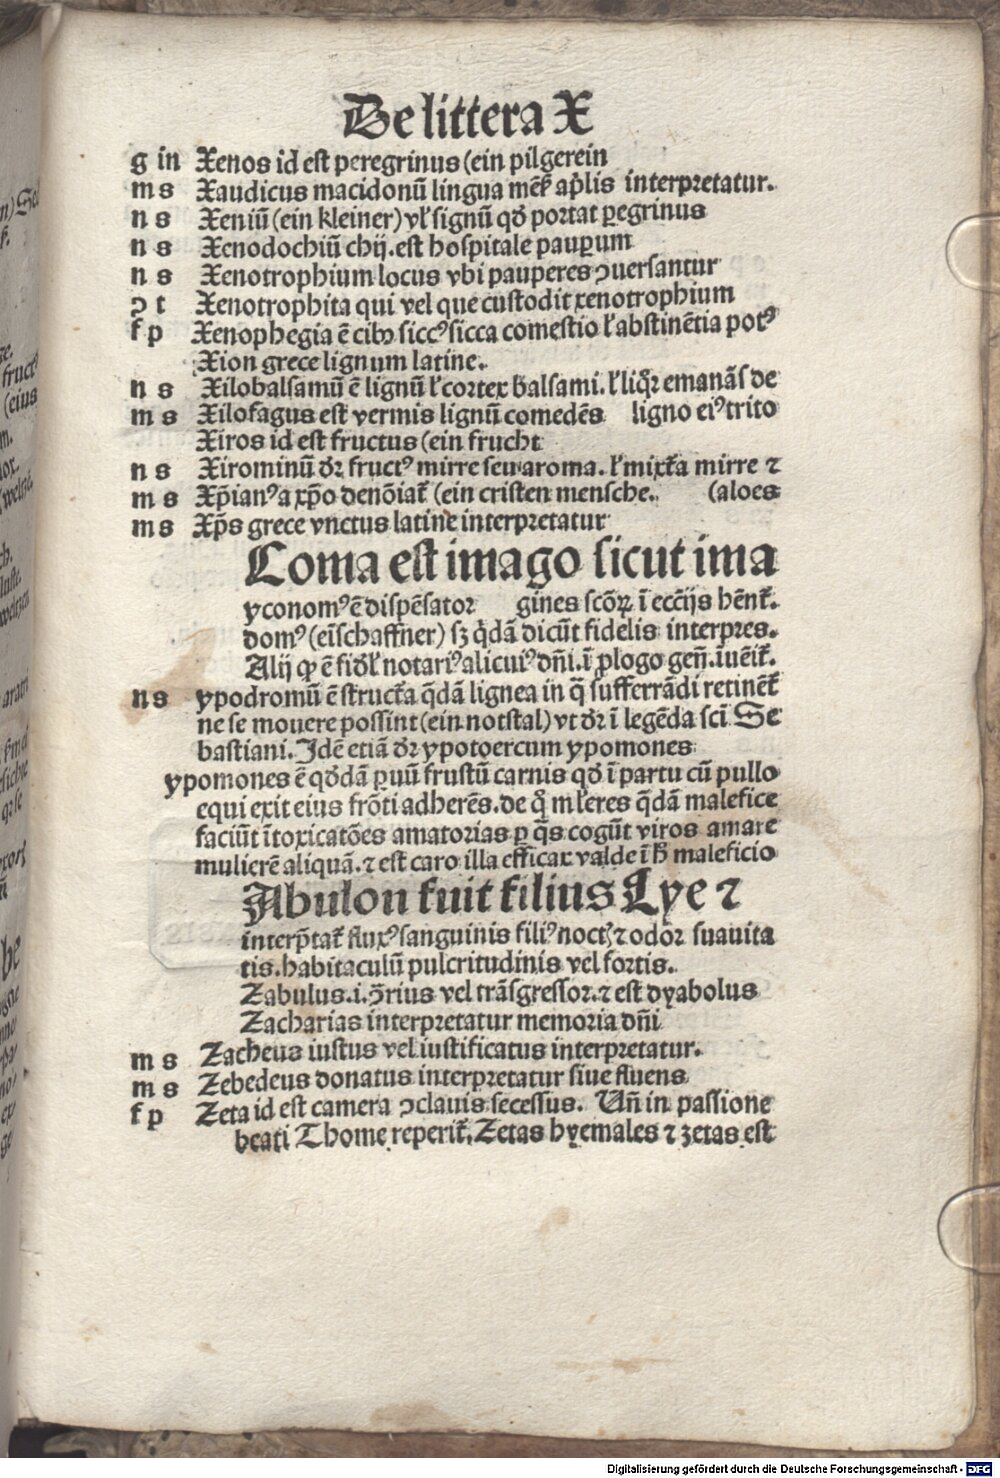 De littera X
g in Xenos id est peregrinus (ein pilgerein
m s Xaudicus macidonū lingua mēẜ apl̄is interpretatur.
n s Xeniū (ein kleiner) vl̛ signū qd̛ portat ꝑegrinus
n s Xenodochiū chij. est hospitale pauꝑum
n s Xenotrophium locus vbi pauperes ꝯuersantur
ꝯ t Xenotrophita qui vel que custodit xenotrophium
f p Xenophegia ē cibꝰ siccꝰ sicca comestio l̛ abstinētia potꝰ
Xion grece lignum latine.
n s Xilobalsamū ē lignū l̛ cortex balsami. l̛ liq̄r emanās de
m s Xilofagus est vermis lignū comedēs ligno eiꝰ trito
Xiros id est fructus (ein frucht
n s Xirominū dr̄ fructꝰ mirre seu aroma. l̛ mixta mirre ⁊
m s Xp̄ianꝰ a xp̄o denōiat̄ (ein cristen mensche. (aloes
m s Xp̄s grece vnctus latine interpretatur
Coma est imago sicut ima
yconomꝰ ē dispēsator gines scōꝝ ī ecc̄ijs hēnt̄.
domꝰ (eīschaffner) sꝫ q̄dā dicūt fidelis interpres.
Alij ꝙ ē fid̛l̛ notariꝰ alicuiꝰ dn̄i. ī ꝓlogo gen̄. īuēit̄.
n s ypodromū ē structa q̄dā lignea in q̄ sufferrādi retinēt̄
ne se mouere possint (ein notstal) vt dr̄ ī legēda scī Se
bastiani. Idē etiā dr̄ ypotoercum ypomones
ypomones ē qd̛dā ꝑuū frustū carnis qd̛ ī partu cū pullo
equi exit eius frōti adherēs. de q̄ ml̛eres q̄dā malefice
faciūt ītoxicatōes amatorias ꝑ q̄s cogūt viros amare
mulierē aliquā. ⁊ est caro illa efficax valde ī h̄ maleficio
Zabulon fuit filius Lye ⁊
interp̄tat̄ fluxꝰ sanguinis filiꝰ noctꝭ ⁊ odor̄ suauita
tis. habitaculū pulcritudinis vel fortis.
Zabulus .i. ꝯ̄rius vel trāsgressor. ⁊ est dyabolus
Zacharias interpretatur memoria dn̄i
m s Zacheus iustus vel iustificatus interpretatur.
m s Zebedeus donatus interpretatur siue fluens
f p Zeta id est camera ꝯclauis secessus. Vn̄ in passione
beati Thome reperit̄. Zetas hyemales ⁊ zetas est
Digitalisierung gefördert durch die Deutsche Forschungsgemeinschaft - DFG